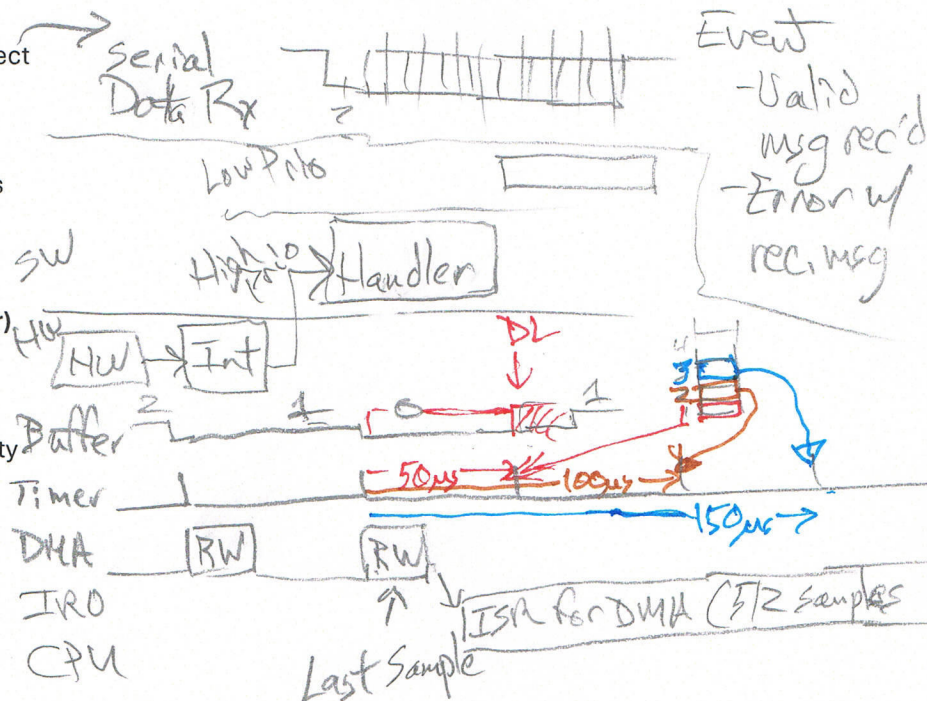 ect
Serial
Data Rx
?
Event
-Valid
msg rec'd
-Error w/
rec. msg
Low Prio
s
SW
High
Prio
Handler
r)
HW
HW
Int
DL
4
3
2
1
Buffer
2
1
0
1
ty
Timer
50µs
100µs
150µs
DMA
RW
RW
IRQ
ISR for DMA (512 samples
CPU
Last Sample